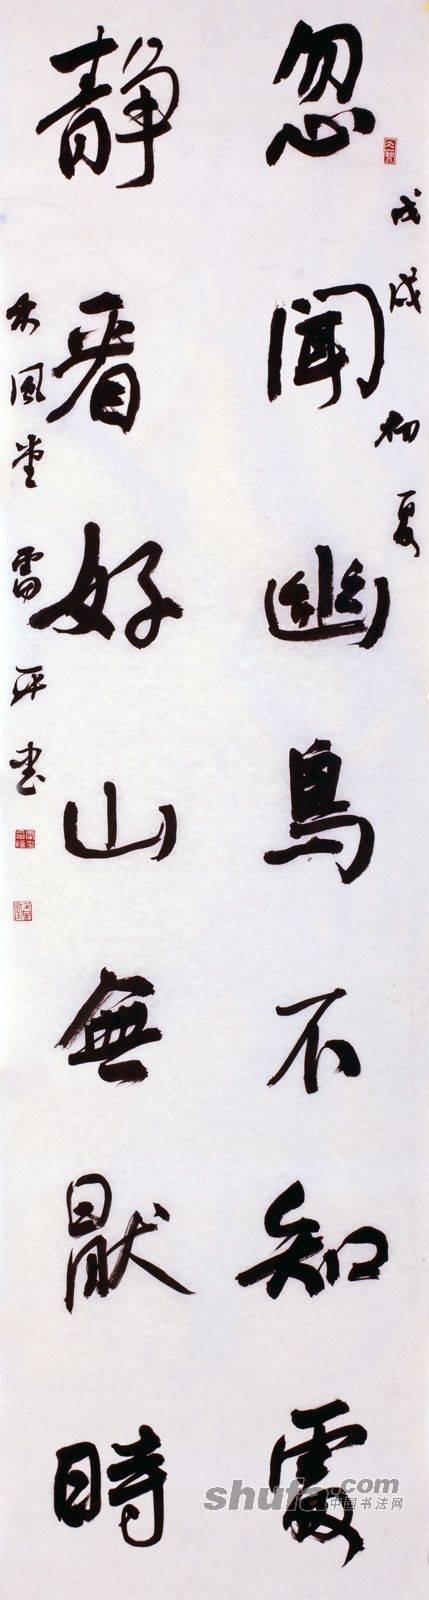 戊戌初夏
忽闻幽鸟不知處
静看好山無猒時
木風堂雷平书
shufa.com
中国书法网